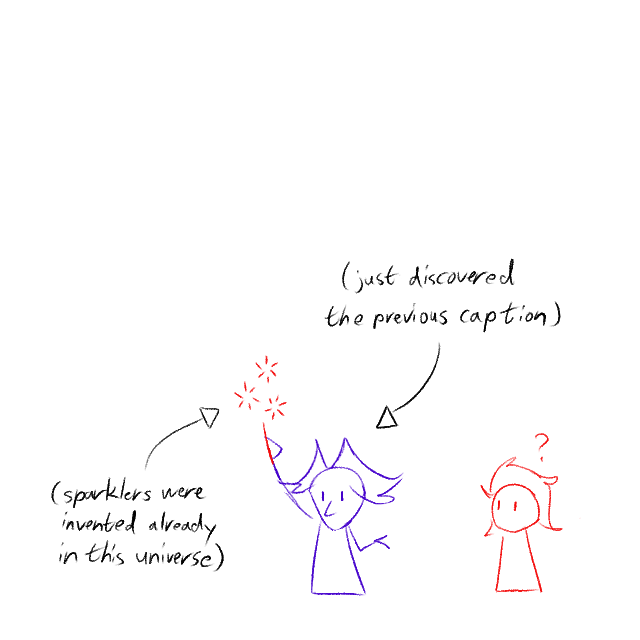 (just discovered
the previous caption)
?
(sparklers were
invented already
in this universe)